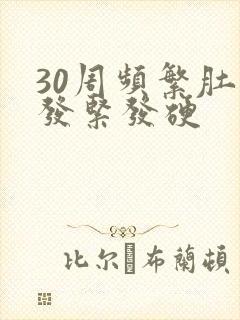 30周頻繁肚
發緊發硬
比尔·布蘭頓